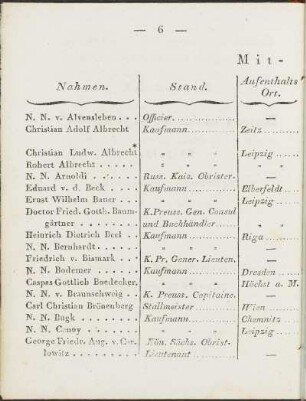 — 6 —
Mit-
Nahmen. Stand. Aufenthalts Ort.
N. N. v. Alvensleben . . . Officier. —
Christian Adolf Albrecht Kaufmann Zeitz
Christian Ludw. Albrecht „ „ Leipzig
Robert Albrecht . . . . „ „ „
N. N. Arnoldi . . . . Russ. Kais. Obrister. —
Eduard v. d. Beck . . . Kaufmann Elberfeldt
Ernst Wilhelm Bauer . . . „ „ Leipzig
Doctor Fried. Gotth. Baum- K. Preuss. Gen. Consul
gärtner . . . . und Buchhändler „
Heinrich Dietrich Beel . . Kaufmann Riga
N. N. Bernhardt . . . „ „
Friedrich v. Bismark . . K. Pr. Gener. Lieuten. —
N. N. Bodemer . . . Kaufmann Dresden
Caspar Gottlich Boedecker, „ „ Höchst a. M.
N. N. v. Braunschweig . . K. Preuss. Capitaine. —
Carl Christian Brünenberg Stallmeister Wien
N. N. Bugk . . . Kaufmann Chemnitz
N. N. . . . „ „ Leipzig
George Friedr. Aug. v. Car- Kön. Sächs. Obrist-
lowitz . . . . Lieutenant —